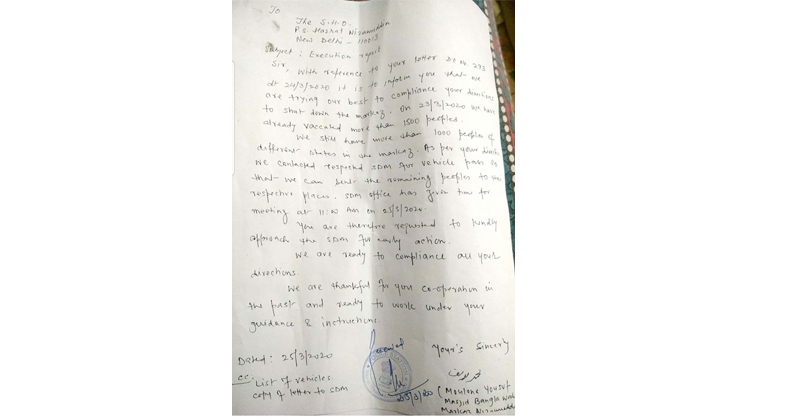 To
The S.H.O.
P.S. Hazrat Nizamuddin
New Delhi - 110013
Subject : Execution report
Sir,
With reference to your letter DS No. 293
dt 24/3/2020 it is to inform you that we
are trying our best to compliance your directions
to shut down the markaz. On 23/3/2020 we have
already vaccated more than 1500 peoples.
We still have more than 1000 peoples of
different states in the markaz. As per your direction
we contacted respected SDM for vehicle pass so
that we can sent the remaining peoples to their
respective places. SDM office has given time for
meeting at 11:00 AM on 25/3/2020
You are therefore requested to kindly
approach the SDM for early action.
We are ready to compliance all your
directions.
We are thankful for your co-operation in
the past and ready to work under your
guidance & instructions.
Dated : 25/3/2020
Your's Sincerly
cc: List of vehicles.
copy of letter to SDM
Received
25/3/20
(Moulana Yousuf
Masjid Bangla wali
Markaz Nizamuddin